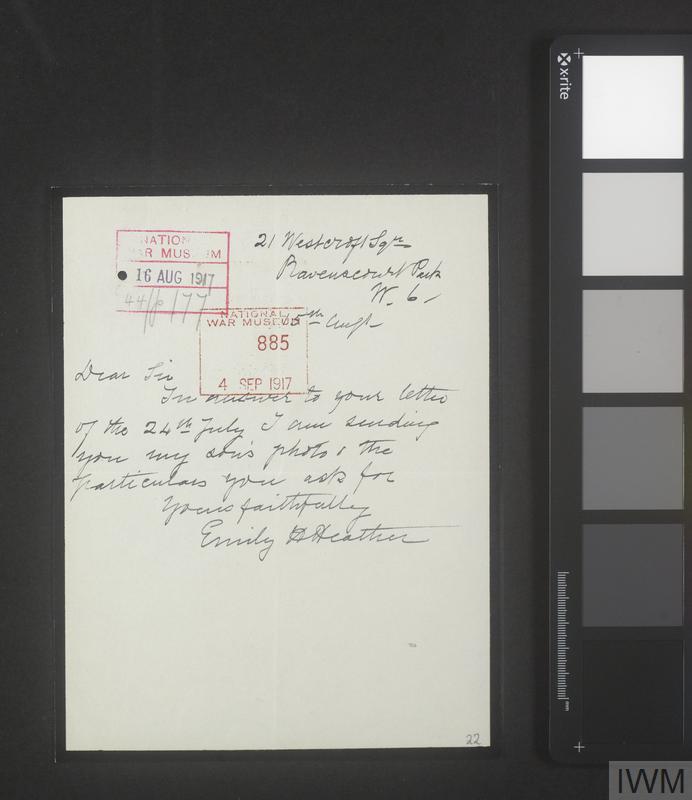 21 Westcroft Sqre
Ravenscourt Park
W. 6
NATION
WAR MUSEUM
16 AUG 1917
44/ /177
15th Augt
NATIONAL
WAR MUSEUM
885
4 SEP 1917
Dear Sir
In answer to your letter
of the 24th July I am sending
you my son's photo & the
particulars you ask for
Yours faithfully
Emily H Heather
22
x-rite
mm
IWM